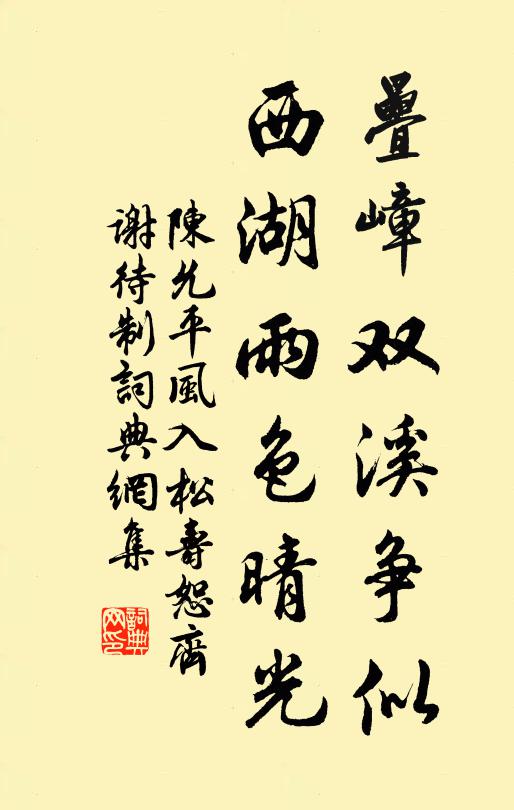 疊嶂双溪争似
西湖雨色晴光
陳允平風入松壽恕齊
謝待制詞典網集
詞典
网印